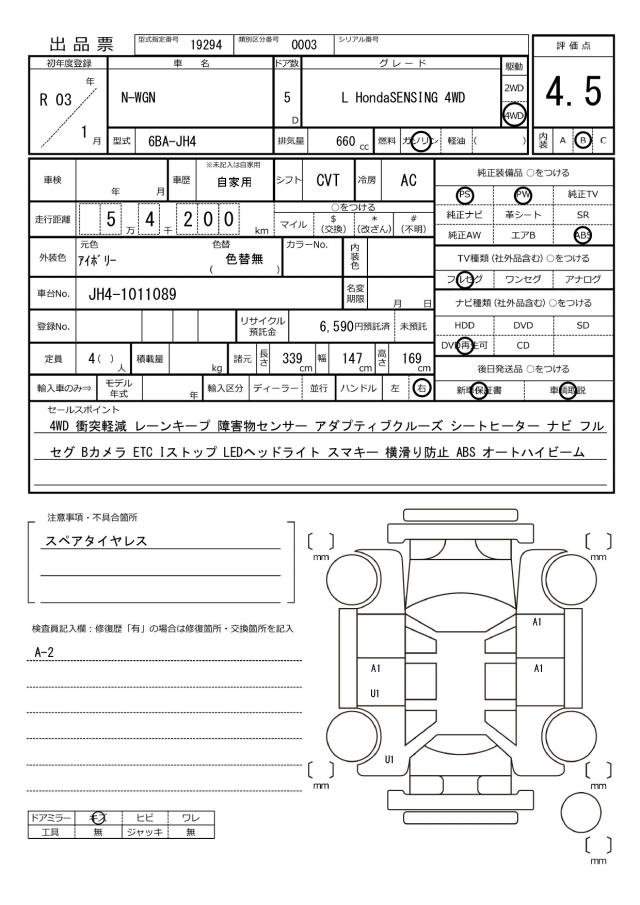 出品票
型式指定番号 19294 類別区分番号 0003 シリアル番号
評価点
4.5
内装 A B C
初年度登録 車名 ドア数 グレード 駆動
R 03 年 1 月
N-WGN 5 D L HondaSENSING 4WD
2WD
4WD
型式 6BA-JH4 排気量 660 cc 燃料 ガソリン 軽油 ( )
車検 年 月 車歴 ※未記入は自家用 自家用 シフト CVT 冷房 AC
純正装備品 ○をつける
PS PW 純正TV
純正ナビ 革シート SR
純正AW エアB ABS
走行距離 5 万 4 千 200 km
○をつける
マイル $ (交換) * (改ざん) # (不明)
外装色 元色 アイボリー 色替 ( 色替無 ) カラーNo. 内装色
TV種類 (社外品含む) ○をつける
フルセグ ワンセグ アナログ
車台No. JH4-1011089 名変期限 月 日
ナビ種類 (社外品含む) ○をつける
HDD DVD SD
DVD再生可 CD
登録No. リサイクル預託金 6,590円預託済 未預託
定員 4 ( ) 人 積載量 kg 諸元 長さ 339 cm 幅 147 cm 高さ 169 cm
後日発送品 ○をつける
新車保証書 車輌取説
輸入車のみ⇒ モデル年式 年 輸入区分 ディーラー 並行 ハンドル 左 右
セールスポイント
4WD 衝突軽減 レーンキープ 障害物センサー アダプティブクルーズ シートヒーター ナビ フル
セグ Bカメラ ETC Iストップ LEDヘッドライト スマキー 横滑り防止 ABS オートハイビーム
注意事項・不具合箇所
スペアタイヤレス
検査員記入欄：修復歴「有」の場合は修復箇所・交換箇所を記入
A-2
mm
mm
A1
A1
A1
U1
U1
mm
mm
mm
ドアミラー キズ ヒビ ワレ
工具 無 ジャッキ 無